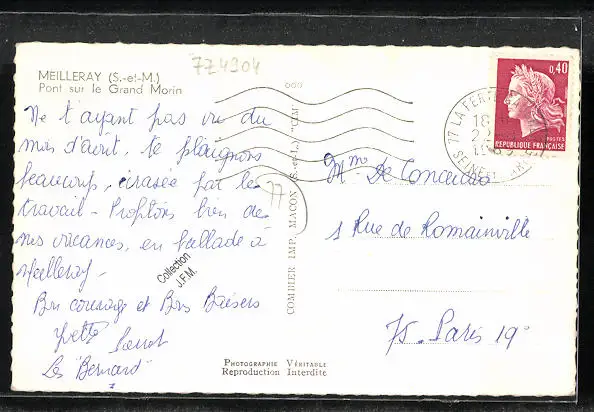 774904
MEILLERAY (S.-et-M.)
Pont sur le Grand Morin
Ne t'ayant pas vu du
mois d'août, te plaignons
beaucoup, écrasée par le
travail - Profitons bien de
nos vacances, en ballade à
Meilleray -
Bon courage et Bons Baisers
Yvette
Les "Bernard"
77
Collection
J.F.M.
COMBIER IMP. MACON (S.-et-L.) "CIM"
PHOTOGRAPHIE VÉRITABLE
Reproduction Interdite
0,40
POSTES
REPUBLIQUE FRANÇAISE
77 LA FERTE
18
SEINE ET
Mme De
1 Rue de Romainville
75. Paris 19°